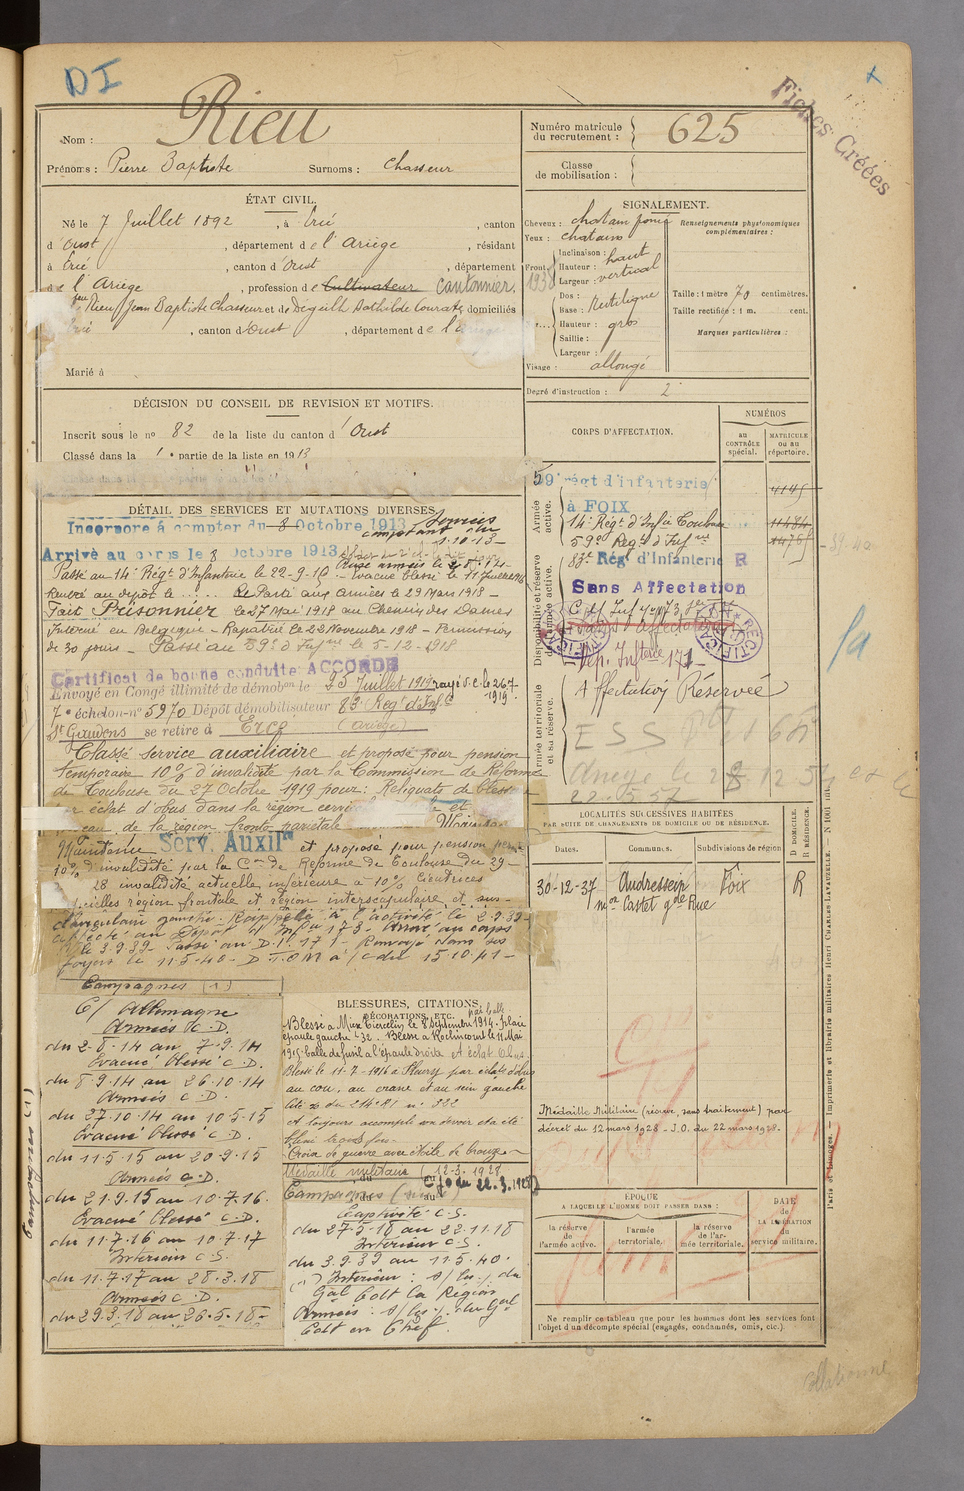 DI
Fiches Créées
Nom : Rieu
Prénoms : Pierre Baptiste Surnoms : Chasseur
Numéro matricule du recrutement : 625
Classe de mobilisation :
ÉTAT CIVIL.
Né le 7 Juillet 1892, à Ercé, canton
d'Oust, département de l'Ariège, résidant
à Ercé, canton d'Oust, département
de l'Ariège, profession de Cultivateur Cantonnier.
Rieu Jean Baptiste Chasseur et de Degeilh Dothilde Courate domiciliés
, canton d'Oust, département de l'
Marié à
SIGNALEMENT.
Cheveux : chatain foncé
Yeux : chatains
Front
Inclinaison : haut
Hauteur :
Largeur : vertical
1938
Dos : Rectiligne
Base :
Hauteur : gros
Saillie :
Largeur :
Visage : allongé
Renseignements physionomiques complémentaires :
Taille : 1 mètre 70 centimètres.
Taille rectifiée : 1 m. cent.
Marques particulières :
Degré d'instruction : 2
DÉCISION DU CONSEIL DE REVISION ET MOTIFS.
Inscrit sous le nº 82 de la liste du canton d'Oust
Classé dans la 1e partie de la liste en 1913
CORPS D'AFFECTATION.
NUMÉROS
AU CONTRÔLE spécial.
MATRICULE ou au répertoire.
Armée active.
59e régt d'infanterie à FOIX
14e Régt d'Infie Toulouse 11484
59e Regt d'Infrie 11475
Disponibilité et réserve de l'armée active.
83e Régt d'Infanterie R
Sans Affectation
RECTIFICATION
Dép. Infterie 171
Armée territoriale et sa réserve.
Affectation Réservée
ESS
22.5.57
DÉTAIL DES SERVICES ET MUTATIONS DIVERSES.
Incorporé à compter du 8 Octobre 1913 Services comptant du 1.10.13
Arrivé au corps le 8 Octobre 1913
Passé au 14e Régt d'Infanterie le 22-9-16 - évacué blessé le 11 Juillet 1916
Rentré au dépôt le Reparti aux armées le 29 Mars 1918 -
Fait Prisonnier le 27 Mai 1918 au Chemin des Dames
Interné en Belgique - Rapatrié le 22 Novembre 1918 - Permission
de 30 jours - Passé au 59e d'Infrie le 5-12-1918
Certificat de bonne conduite ACCORDÉ
Envoyé en Congé illimité de démobon le 25 Juillet 1919 rayé s.c. le 26.7.1919.
7e échelon-nº 5970 Dépôt démobilisateur 83e Régt d'Inf.
St Gaudens se retire à Ercé (Ariège)
Classé service auxiliaire et proposé pour pension
temporaire 10% d'invalidité par la Commission de Réforme
de Toulouse du 27 Octobre 1919 pour : Reliquats de bless
éclat d'obus dans la région cervi et
de la région fronto pariétale
Maintenu Serv. Auxilre et proposé pour pension
10% d'invalidité par la Con de Réforme de Toulouse du 29-
28 invalidité actuelle inférieure à 10% Cicatrices
région frontale et région interscapulaire et sus-
claviculaire gauche. Rappelé à l'activité le 2.9.39-
affecté au Dépôt d'Infie 173 - Arrivé au corps
le 3.9.39 - Passé au D.I. 171 - Renvoyé dans ses
foyers le 11.5.40 -
Campagnes (1)
C/ Allemagne
Armées C.D.
du 2-8-14 au 7-9-14
Evacué blessé C.D.
du 8.9.14 au 26.10.14
Armées C.D.
du 27.10.14 au 10.5.15
Evacué blessé C.D.
du 11.5.15 au 20.9.15
Armées C.D.
du 21.9.15 au 10.7.16.
Evacué blessé C.D.
du 11.7.16 au 10.7.17
Intérieur C.S.
du 11.7.17 au 28.3.18
Armées C.D.
du 29.3.18 au 26.5.18-
Campagnes (1)
BLESSURES, CITATIONS, DÉCORATIONS, ETC.
par balle
Blessé à le 8 Septembre 1914. plaie
épaule gauche. Blessé à Roclincourt le 11 Mai
1915 balle de fusil à l'épaule droite et éclat obus.
Blessé le 11-7-1916 à Fleury par éclats d'obus
au cou, au crane et au sein gauche
Cité du 214e RI nº 322
A toujours accompli son devoir a été
blessé trois fois-
Croix de guerre avec étoile de bronze-
Médaille militaire (12-3-1928
JO du 22.3.1928)
Campagnes (suite)
Captivité C.S.
du 27-5-18 au 22-11-18
Intérieur C.S.
du 3.9.39 au 11.5.40.
(1) Intérieur : du
Gal Cdt la Région
Armées : du Gal
Cdt en Chef.
LOCALITÉS SUCCESSIVES HABITÉES
PAR SUITE DE CHANGEMENTS DE DOMICILE OU DE RÉSIDENCE.
Dates.
Communes.
Subdivisions de région
D DOMICILE.
R RÉSIDENCE.
30-12-37 Audressein Foix R
mon Castet gde Rue
Médaille Militaire (réserve sans traitement) par
décret du 12 mars 1928 - J.O. du 22 mars 1928-
ÉPOQUE
A LAQUELLE L'HOMME DOIT PASSER DANS :
la réserve de l'armée active.
l'armée territoriale.
la réserve de l'armée territoriale.
DATE DE LA LIBÉRATION du service militaire.
Ne remplir ce tableau que pour les hommes dont les services font
l'objet d'un décompte spécial (engagés, condamnés, omis, etc.).
Paris et Limoges. — Imprimerie et librairie militaires Henri CHARLES-LAVAUZELLE.
Collationné